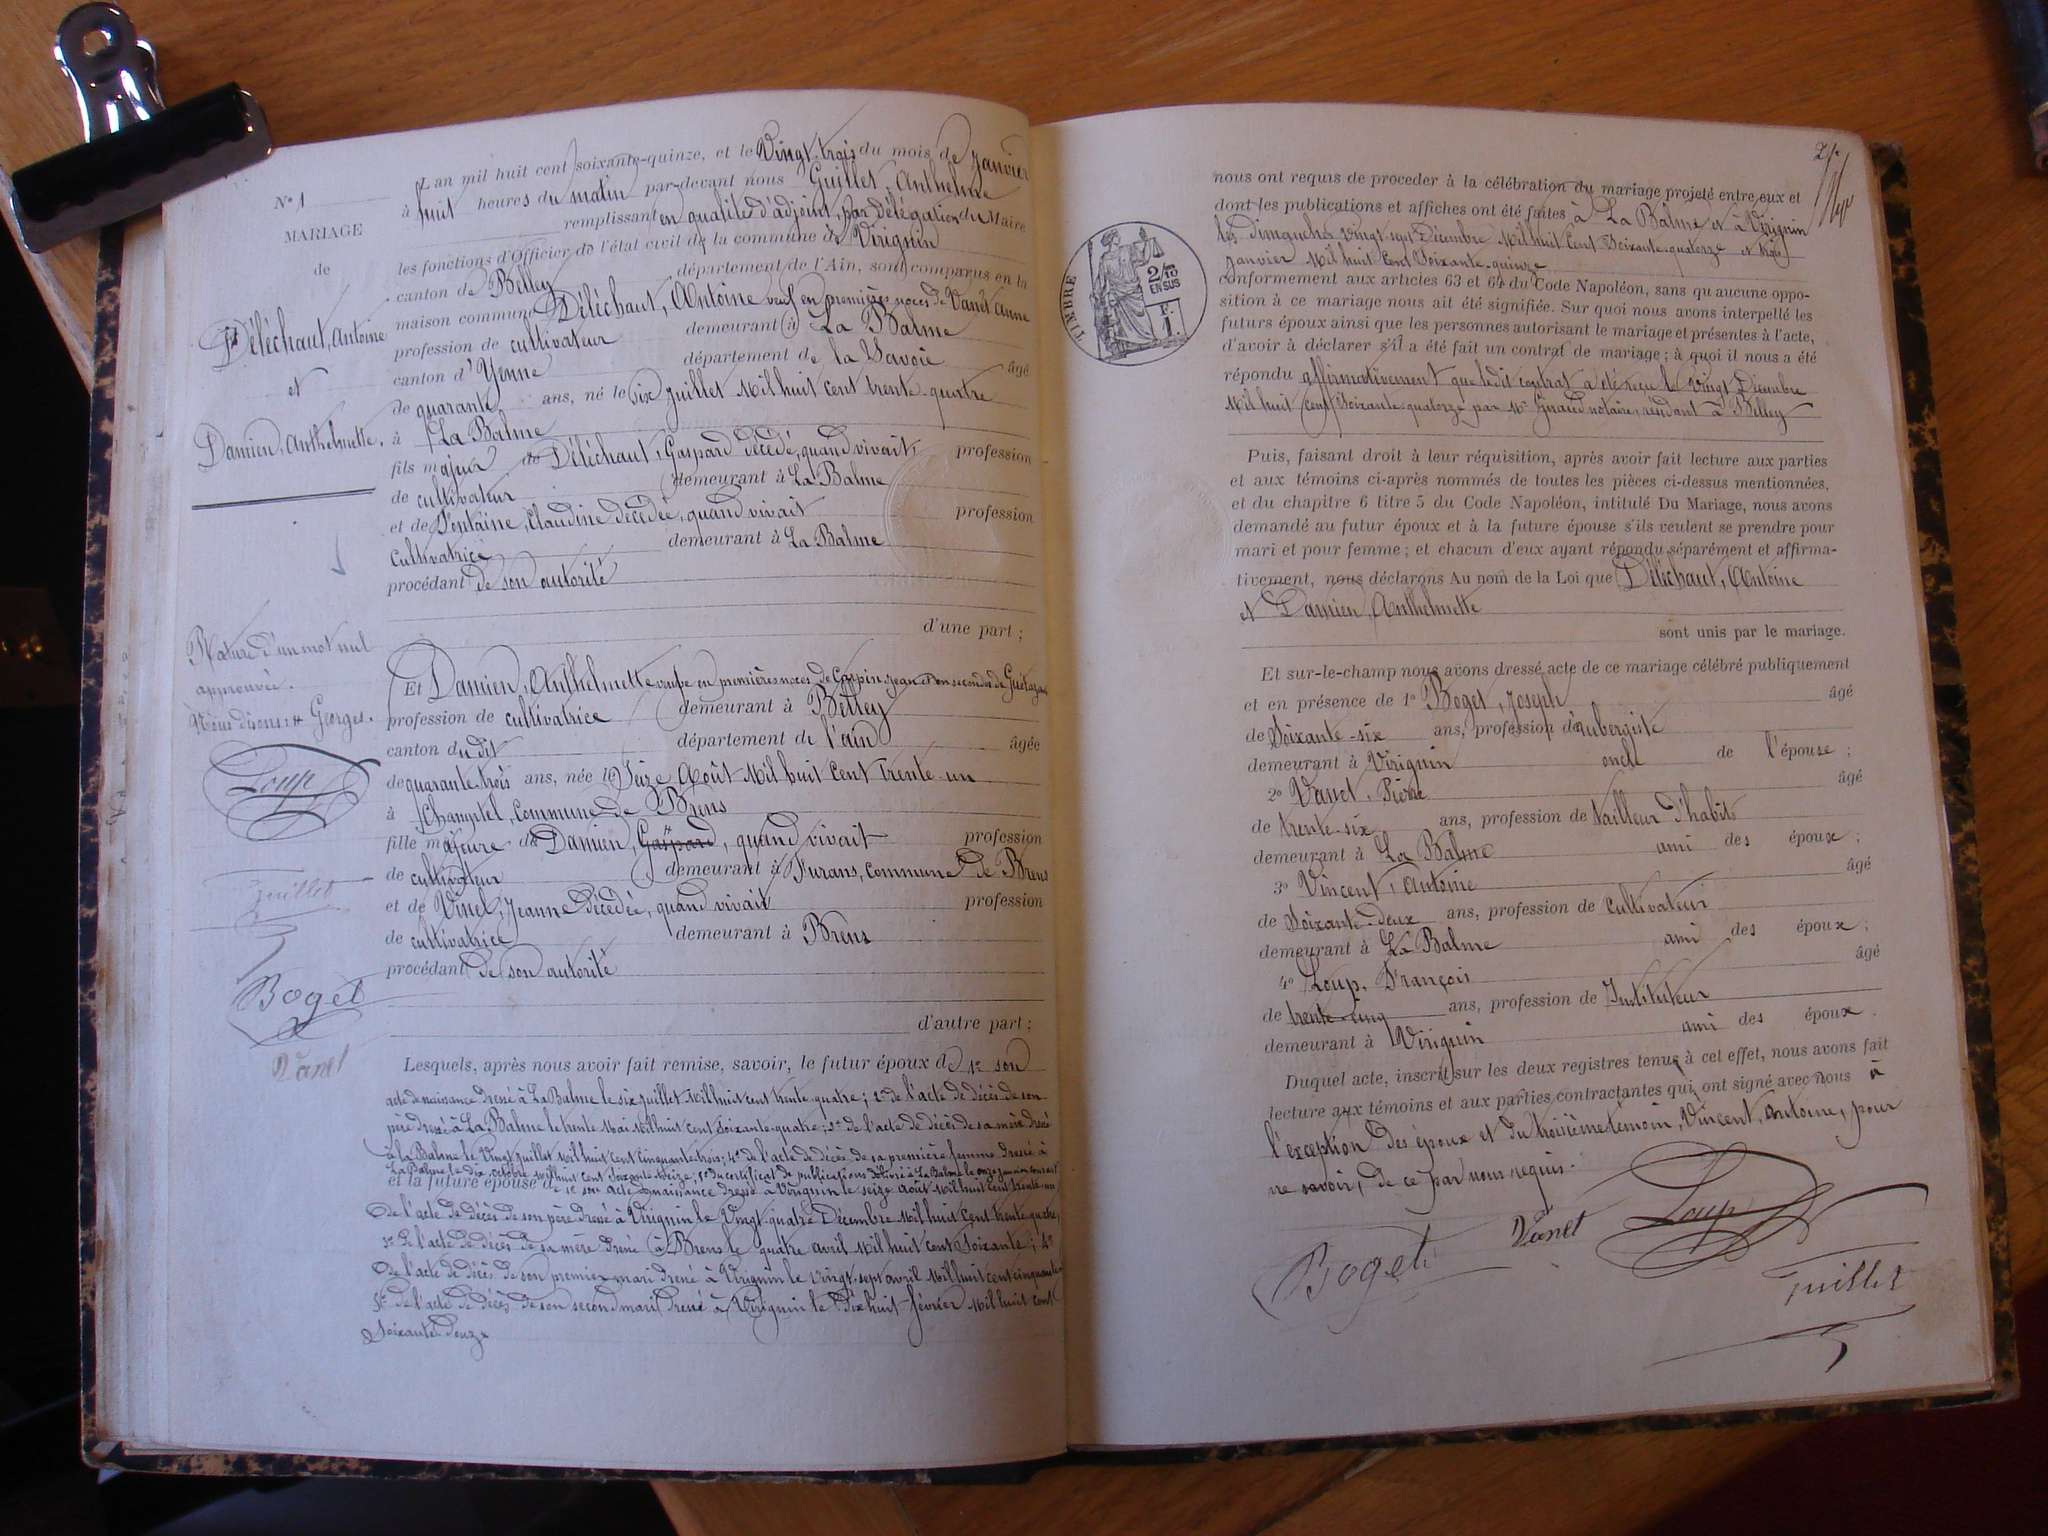 N° 1
MARIAGE
de
Déléchaut, Antoine
et
Damien, Anthelmette.
Rature d'un mot nul
approuvée.
Nous disons: # Georges.
Loup
Guillet
Boget
Vanet
L'an mil huit cent soixante-quinze, et le Vingt-trois du mois de Janvier
à huit heures du matin par-devant nous Guillet, Anthelme
remplissant en qualité d'adjoint, par délégation du Maire
les fonctions d'Officier de l'état civil de la commune de Virignin
canton de Belley département de l'Ain, sont comparus en la
maison commune Déléchaut, Antoine veuf en premières noces de Vanet Anne
profession de cultivateur demeurant à La Balme
canton d'Yenne département de la Savoie âgé
de quarante ans, né le six Juillet Mil huit cent trente quatre
à La Balme
fils majeur de Déléchaut, Gaspard décédé, quand vivait, profession
de cultivateur demeurant à La Balme
et de Fontaine, Claudine décédée, quand vivait profession
Cultivatrice demeurant à La Balme
procédant de son autorité
d'une part ;
Et Damien, Anthelmette veuve en premières noces de Carpin Jean et en secondes de
profession de cultivatrice demeurant à Belley
canton dudit département de l'ain âgée
de quarante trois ans, née le Seize Août Mil huit cent trente-un
à Champtel, Commune de Brens
fille majeure de Damien, Gaspard #, quand vivait profession
de cultivateur demeurant à Furans, commune de Brens
et de Vinel, Jeanne Décédée, quand vivait profession
de cultivatrice demeurant à Brens
procédant de son autorité
d'autre part ;
Lesquels, après nous avoir fait remise, savoir, le futur époux de 1° son
acte de naissance dressé à La Balme le six Juillet Mil huit cent trente-quatre ; 2° de l'acte de décès de son
père dressé à La Balme le trente Mai Mil huit cent soixante-quatre ; 3° de l'acte de décès de sa mère dressé
à la Balme le Vingt Juillet Mil huit cent cinquante trois ; 4° de l'acte de décès de sa première femme dressé à
La Balme le dix octobre Mil huit cent soixante treize ; 5° du certificat de publications délivré à La Balme le onze janvier courant
et la future épouse de 1° son acte de naissance dressé à Virignin le seize août Mil huit cent trente-un
de l'acte de décès de son père dressé à Virignin le Vingt-quatre Décembre Mil huit cent trente-quatre,
3° de l'acte de décès de sa mère dressé à Brens le quatre avril Mil huit cent soixante ; 4°
de l'acte de décès de son premier mari dressé à Virignin le Vingt-sept avril Mil huit cent cinquante
5° de l'acte de décès de son second mari dressé à Virignin le dix huit février Mil huit cent
soixante-douze
nous ont requis de proceder à la célébration du mariage projeté entre eux et
dont les publications et affiches ont été faites à La Balme et à Virignin
les dimanches Vingt sept Décembre Mil huit cent soixante-quatorze et trois
janvier Mil huit cent soixante-quinze
conformement aux articles 63 et 64 du Code Napoléon, sans qu'aucune oppo-
sition à ce mariage nous ait été signifiée. Sur quoi nous avons interpellé les
futurs époux ainsi que les personnes autorisant le mariage et présentes à l'acte,
d'avoir à déclarer s'il a été fait un contrat de mariage ; à quoi il nous a été
répondu affirmativement que ledit contrat a été reçu le Vingt Décembre
Mil huit cent soixante quatorze par Me Giraud notaire, résidant à Belley
TIMBRE
2/10 EN SUS
F. 1.
Puis, faisant droit à leur réquisition, après avoir fait lecture aux parties
et aux témoins ci-après nommés de toutes les pièces ci-dessus mentionnées,
et du chapitre 6 titre 5 du Code Napoléon, intitulé Du Mariage, nous avons
demandé au futur époux et à la future épouse s'ils veulent se prendre pour
mari et pour femme ; et chacun d'eux ayant répondu séparément et affirma-
tivement, nous déclarons Au nom de la Loi que Déléchaut, Antoine
et Damien, Anthelmette
sont unis par le mariage.
Et sur-le-champ nous avons dressé acte de ce mariage célébré publiquement
et en présence de 1° Boget, Joseph âgé
de soixante-six ans, profession d'aubergiste
demeurant à Virignin oncle de l'épouse ;
2° Vanet, Pierre âgé
de trente-six ans, profession de tailleur d'habits
demeurant à La Balme ami des époux ;
3° Vincent, Antoine âgé
de soixante-deux ans, profession de cultivateur
demeurant à La Balme ami des époux ;
4° Loup, François âgé
de trente-cinq ans, profession de Instituteur
demeurant à Virignin ami des époux.
Duquel acte, inscrit sur les deux registres tenus à cet effet, nous avons fait
lecture aux témoins et aux parties contractantes qui ont signé avec nous à
l'exception des époux et du troisième témoin, Vincent, Antoine, pour
ne savoir, de ce par nous requis.
Boget Vanet Loup
Guillet